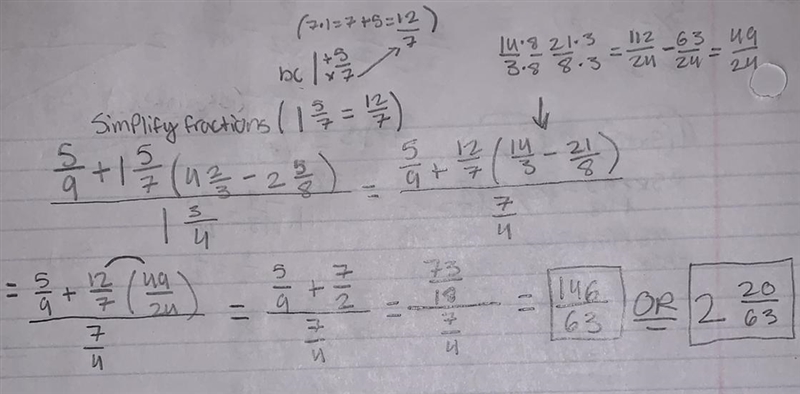 (7·1=7+5=12/7)
bc 1 +5/×7
14·8/3·8 21·3/8·3 = 112/24 - 63/24 = 49/24
Simplify fractions (1 5/7 = 12/7)
(5/9 + 1 5/7 (4 2/3 - 2 5/8)) / (1 3/4) = (5/9 + 12/7 (14/3 - 21/8)) / (7/4)
= (5/9 + 12/7 (49/24)) / (7/4) = (5/9 + 7/2) / (7/4) = (73/18) / (7/4) = 146/63 OR 2 20/63